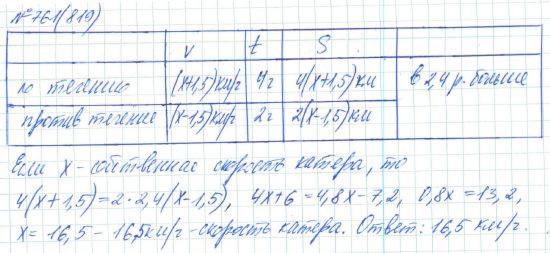 №761(819)
v t S
по течению (x+1,5)км/г 4г 4(x+1,5)км в 2,4 р. больше
против течение (x-1,5)км/г 2г 2(x-1,5)км
Если x - собственная скорость катера, то
4(x+1,5)=2·2,4(x-1,5), 4x+6=4,8x-7,2, 0,8x=13,2,
x= 16,5 - 16,5км/г - скорость катера. Ответ: 16,5 км/г.